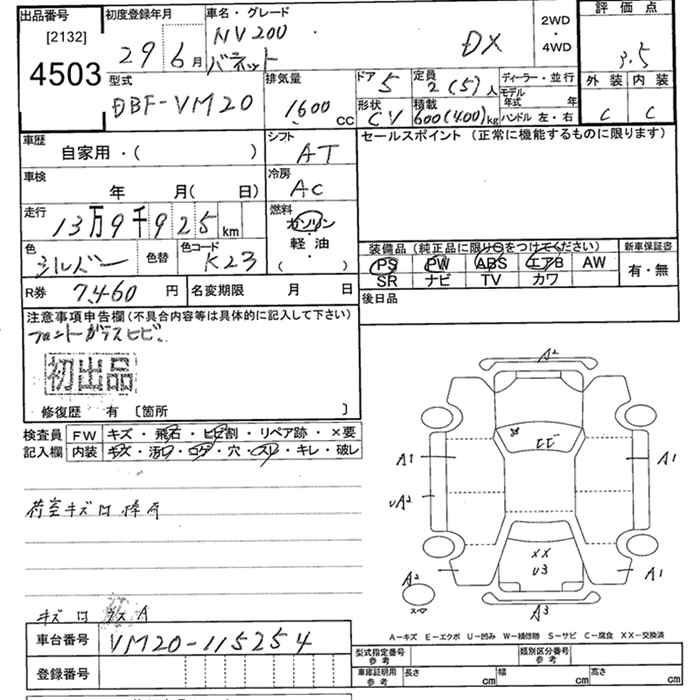 出品番号
[2132]
4503
初度登録年月
29 6月
車名・グレード
NV200
バネット
DX
2WD
・
4WD
評価点
3.5
外装 内装
C C
型式
DBF-VM20
排気量
1600 CC
ドア 5
定員 2(5)人
ディーラー・並行
形状 CV
積載 600(400)kg
モデル年式 年
ハンドル 左・右
車歴
自家用・( )
シフト
AT
セールスポイント(正常に機能するものに限ります)
車検
年 月( 日)
冷房
AC
走行
13万9千925km
燃料
ガソリン
・
軽油
・
( )
色
シルバー
色替
色コード
K23
装備品(純正品に限り○をつけてください)
新車保証書
PS PW ABS エアB AW
SR ナビ TV カワ
有・無
R券 7,460円
名変期限 月 日
後日品
注意事項申告欄(不具合内容等は具体的に記入して下さい)
フロントガラスヒビ
初出品
修復歴 有 〔箇所 〕
検査員 FW キズ・飛石・ヒビ割・リペア跡・×要
記入欄 内装 キズ・汚れ・コゲ・穴・スレ・キレ・破レ
A2
ヒビ
A1 A1
UA2
XX
U3
A2 A1
A3
A−キズ E−エクボ U−凹み W−補修跡 S−サビ C−腐食 XX−交換済
車台番号 VM20-115254
登録番号
型式指定番号 参考
類別区分番号 参考
車庫証明用 参考 長さ cm 幅 cm 高さ cm